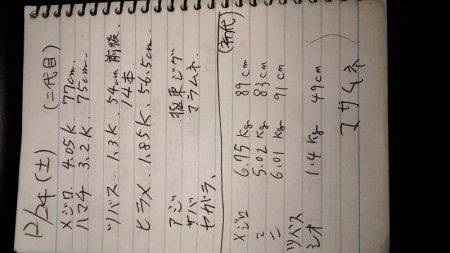 12/24 (土) (二代目)
メジロ 4.05K. 77cm.
ハマチ 3.2K. 75cm.
ツバス. 1.3K. 54cm前後
14本
ヒラメ. 1.85K. 56.5cm.
アジ
サバ マラムネ
ヤガラ.
メジロ 6.75Kg 89cm
〃 5.02Kg 83cm
〃 6.01Kg 91cm
ツバス
シオ 1.4Kg 49cm